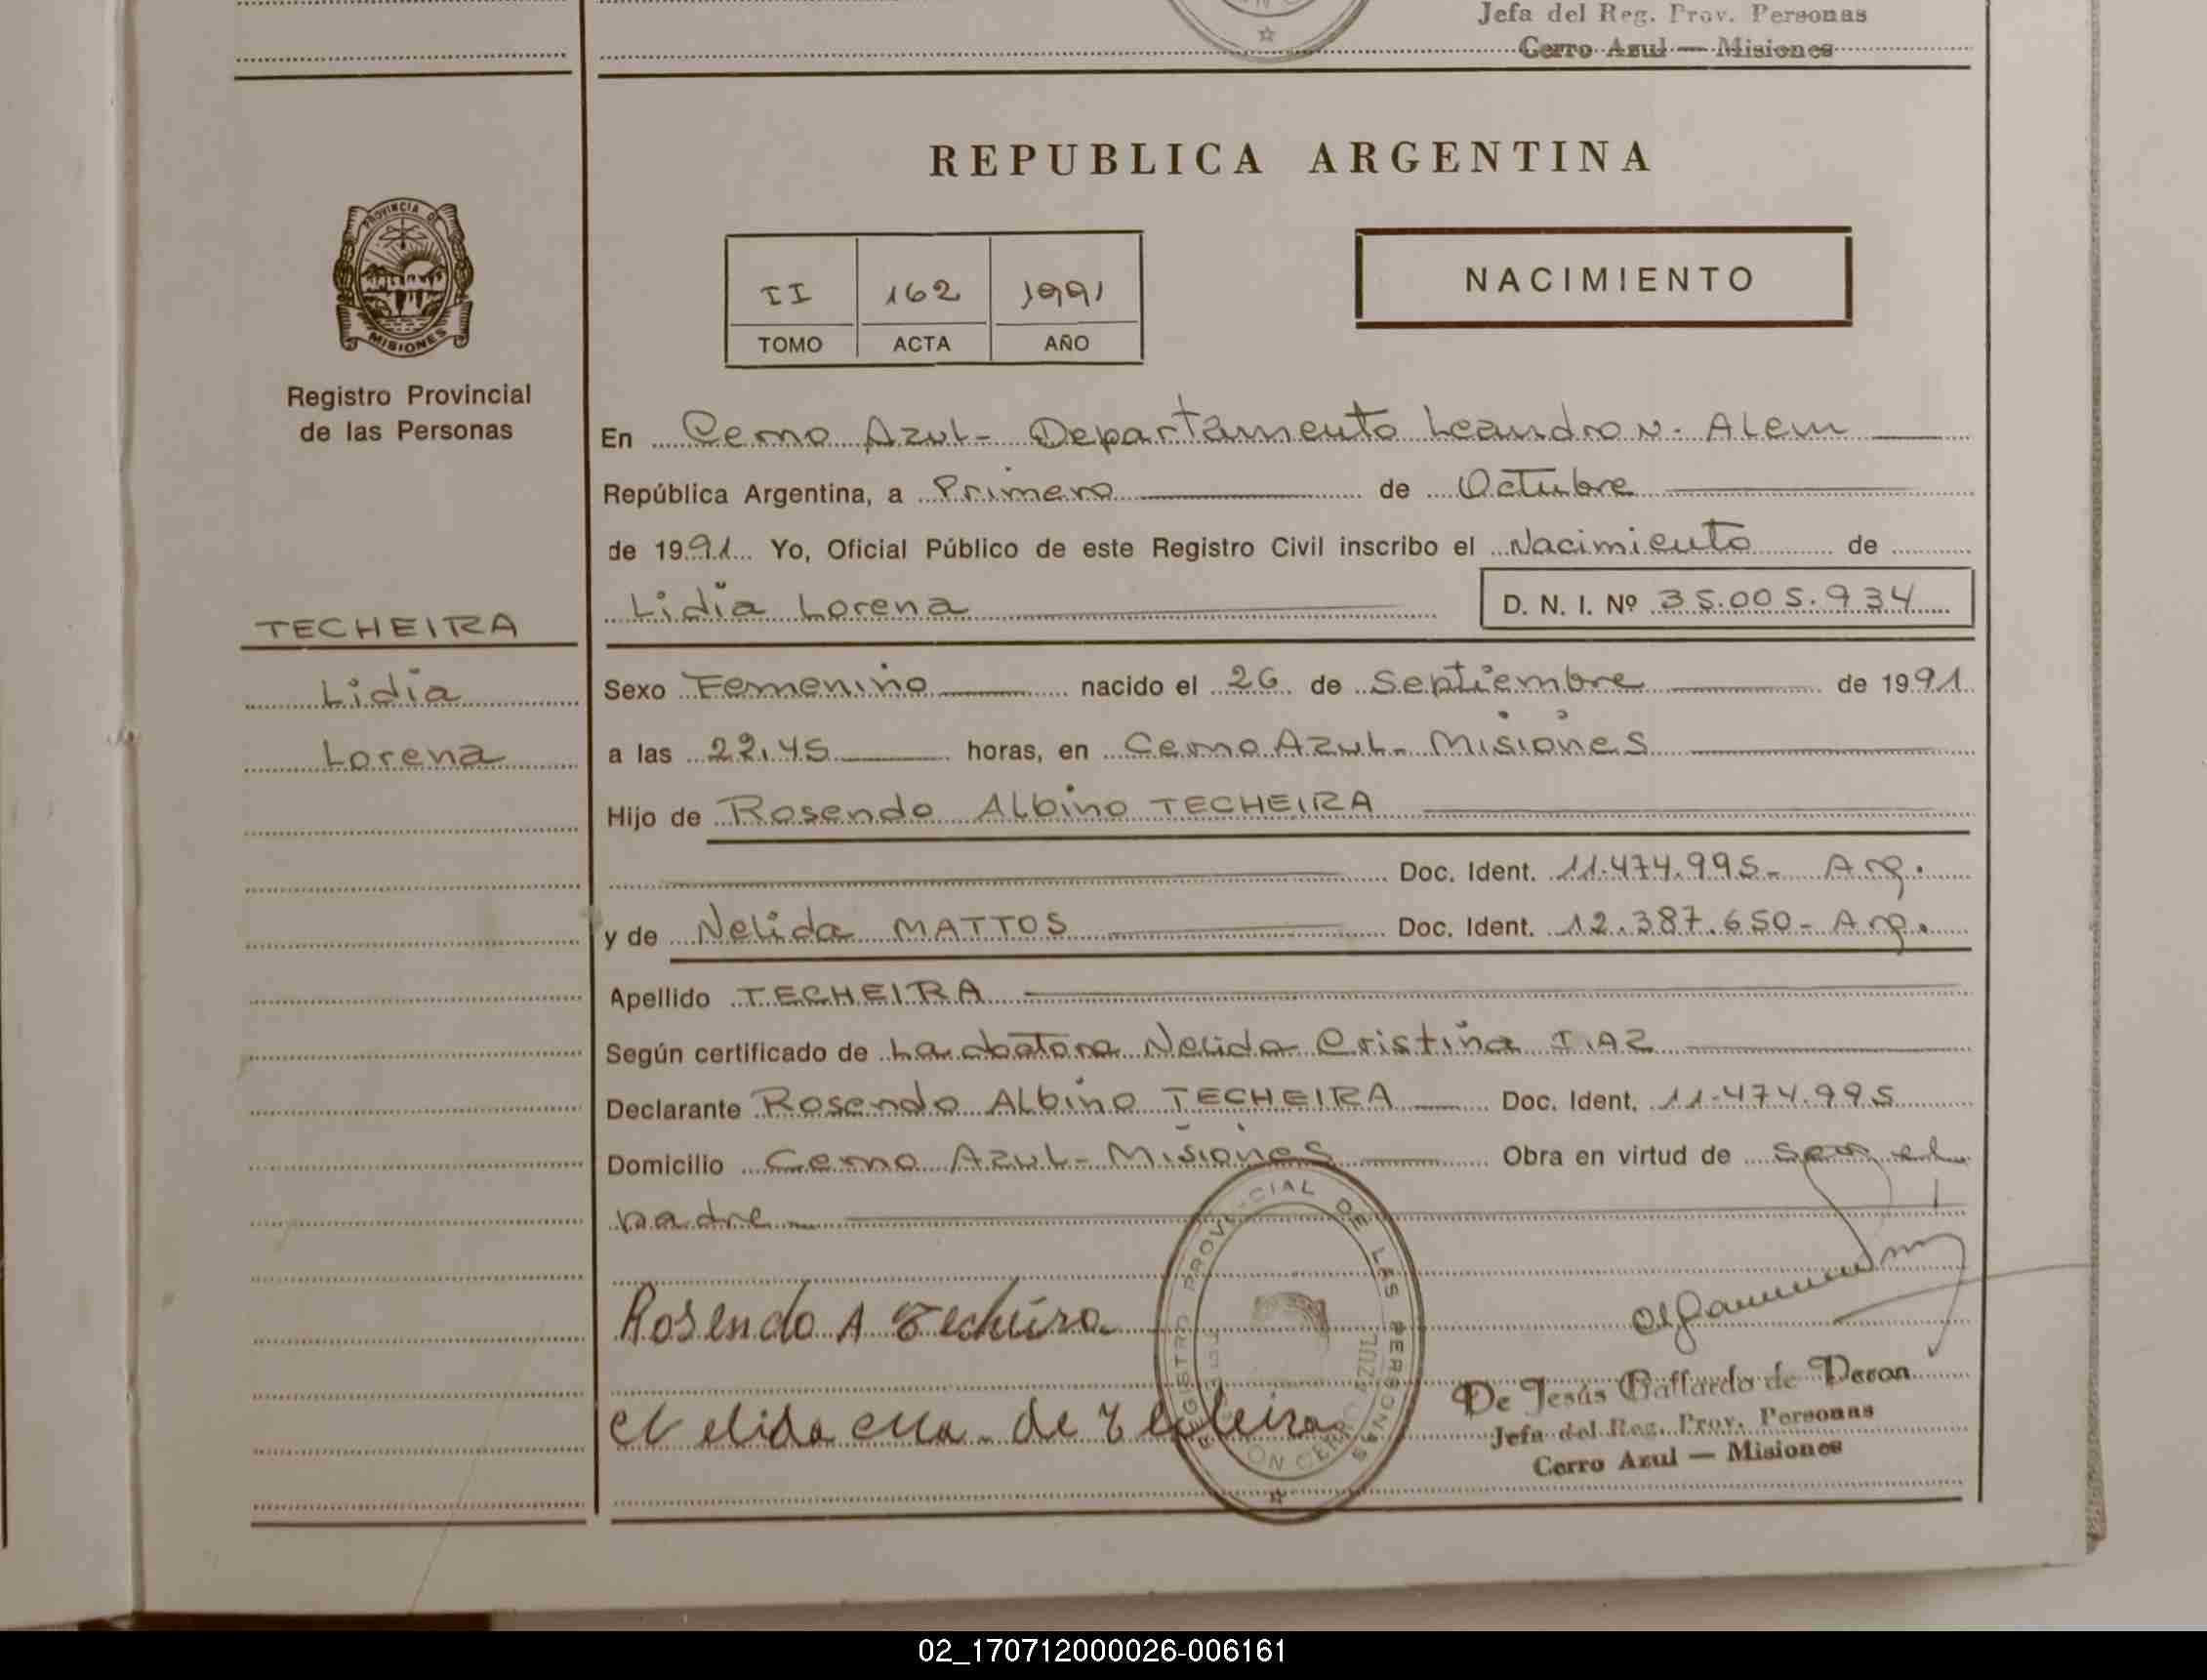 Jefa del Reg. Prov. Personas
Cerro Azul — Misiones
REPUBLICA ARGENTINA
PROVINCIA DE
MISIONES
Registro Provincial
de las Personas
II 162 1991
TOMO ACTA AÑO
NACIMIENTO
En Cerro Azul- Departamento Leandro N. Alem
República Argentina, a Primero de Octubre
de 1991 Yo, Oficial Público de este Registro Civil inscribo el Nacimiento de
Lidia Lorena D. N. I. Nº 35.005.934
TECHEIRA
Lidia
Lorena
Sexo Femenino nacido el 26 de Septiembre de 1991
a las 22,45 horas, en Cerro Azul- Misiones
Hijo de Rosendo Albino TECHEIRA
Doc. Ident. 11.474.995- Arg.
y de Nelida MATTOS Doc. Ident. 12.387.650- Arg.
Apellido TECHEIRA
Según certificado de La doctora Nelida Cristina
Declarante Rosendo Albino TECHEIRA Doc. Ident. 11.474.995
Domicilio Cerro Azul- Misiones Obra en virtud de ser el
padre
Rosendo A Techeira
Nelida de Techeira
REGISTRO PROVINCIAL DE LAS PERSONAS
CERRO AZUL
De Jesús Gallardo de
Jefa del Reg. Prov. Personas
Cerro Azul — Misiones
02_170712000026-006161